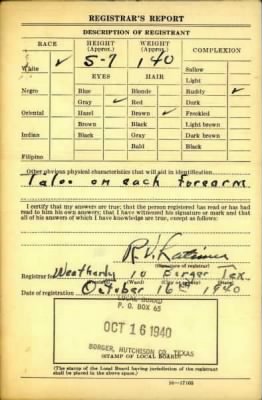 REGISTRAR'S REPORT
DESCRIPTION OF REGISTRANT
RACE HEIGHT (Approx.) WEIGHT (Approx.) COMPLEXION
White ✓ 5-7 140 Sallow
EYES HAIR Light
Negro Blue Blonde Ruddy ✓
Gray ✓ Red Dark
Oriental Hazel Brown ✓ Freckled
Brown Black Light brown
Indian Black Gray Dark brown
Bald Black
Filipino
Other obvious physical characteristics that will aid in identification
Tatoo on each forearm
I certify that my answers are true; that the person registered has read or has had
read to him his own answers; that I have witnessed his signature or mark and that
all of his answers of which I have knowledge are true, except as follows:
R.V.
(Signature of registrar)
Registrar for Weatherly 10 Borger Tex
(Ward) (City or county) (State)
Date of registration October 16 1940
LOCAL BOARD
P. O. BOX 65
OCT 16 1940
BORGER, HUTCHISON CO. TEXAS
(STAMP OF LOCAL BOARD)
(The stamp of the Local Board having jurisdiction of the registrant
shall be placed in the above space.)
16—17105